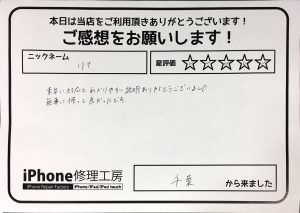 本日は当店をご利用頂きありがとうございます！
ご感想をお願いします！
ニックネーム
星評価 ☆☆☆☆☆
対応と わかりやすい説明ありがとうございました。
無事に 直って 良かったです
iPhone修理工房
iPhone Repair Factory iPhone/iPad/iPod touch
千葉 から来ました